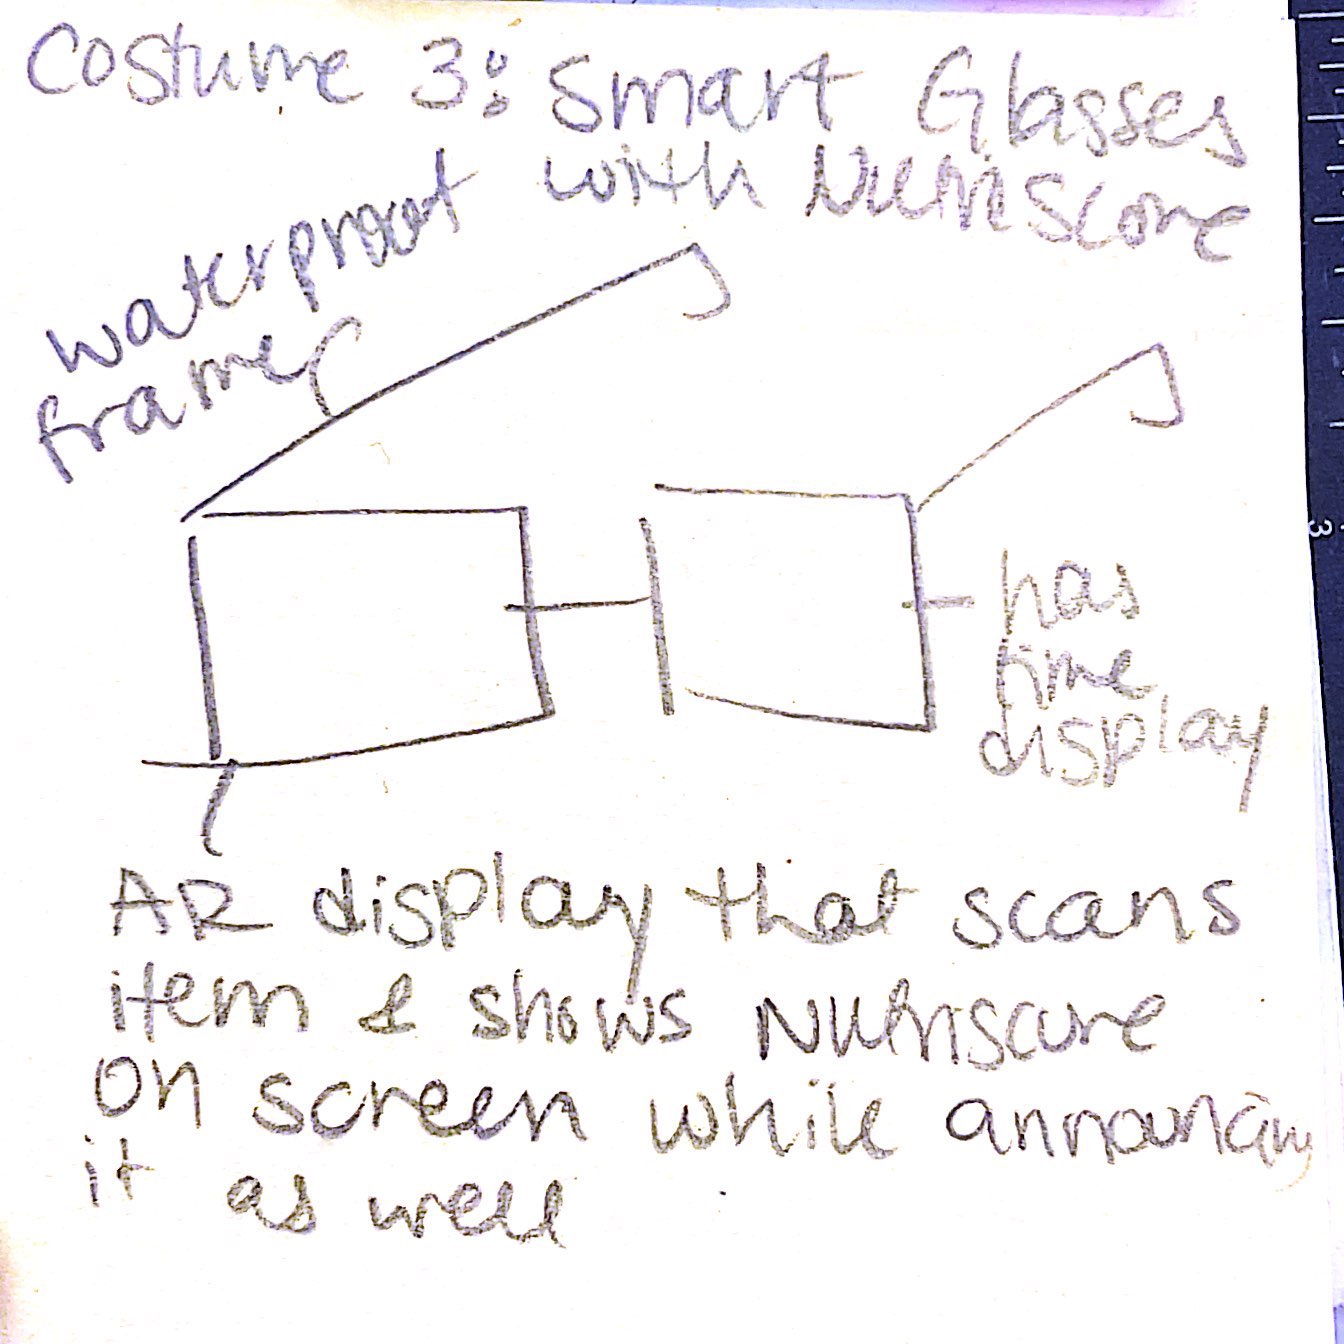 Costume 3: Smart Glasses
with Nutriscore
waterproof
frame
has
time
display
AR display that scans
item & shows Nutriscore
on screen while announcing
it as well
3